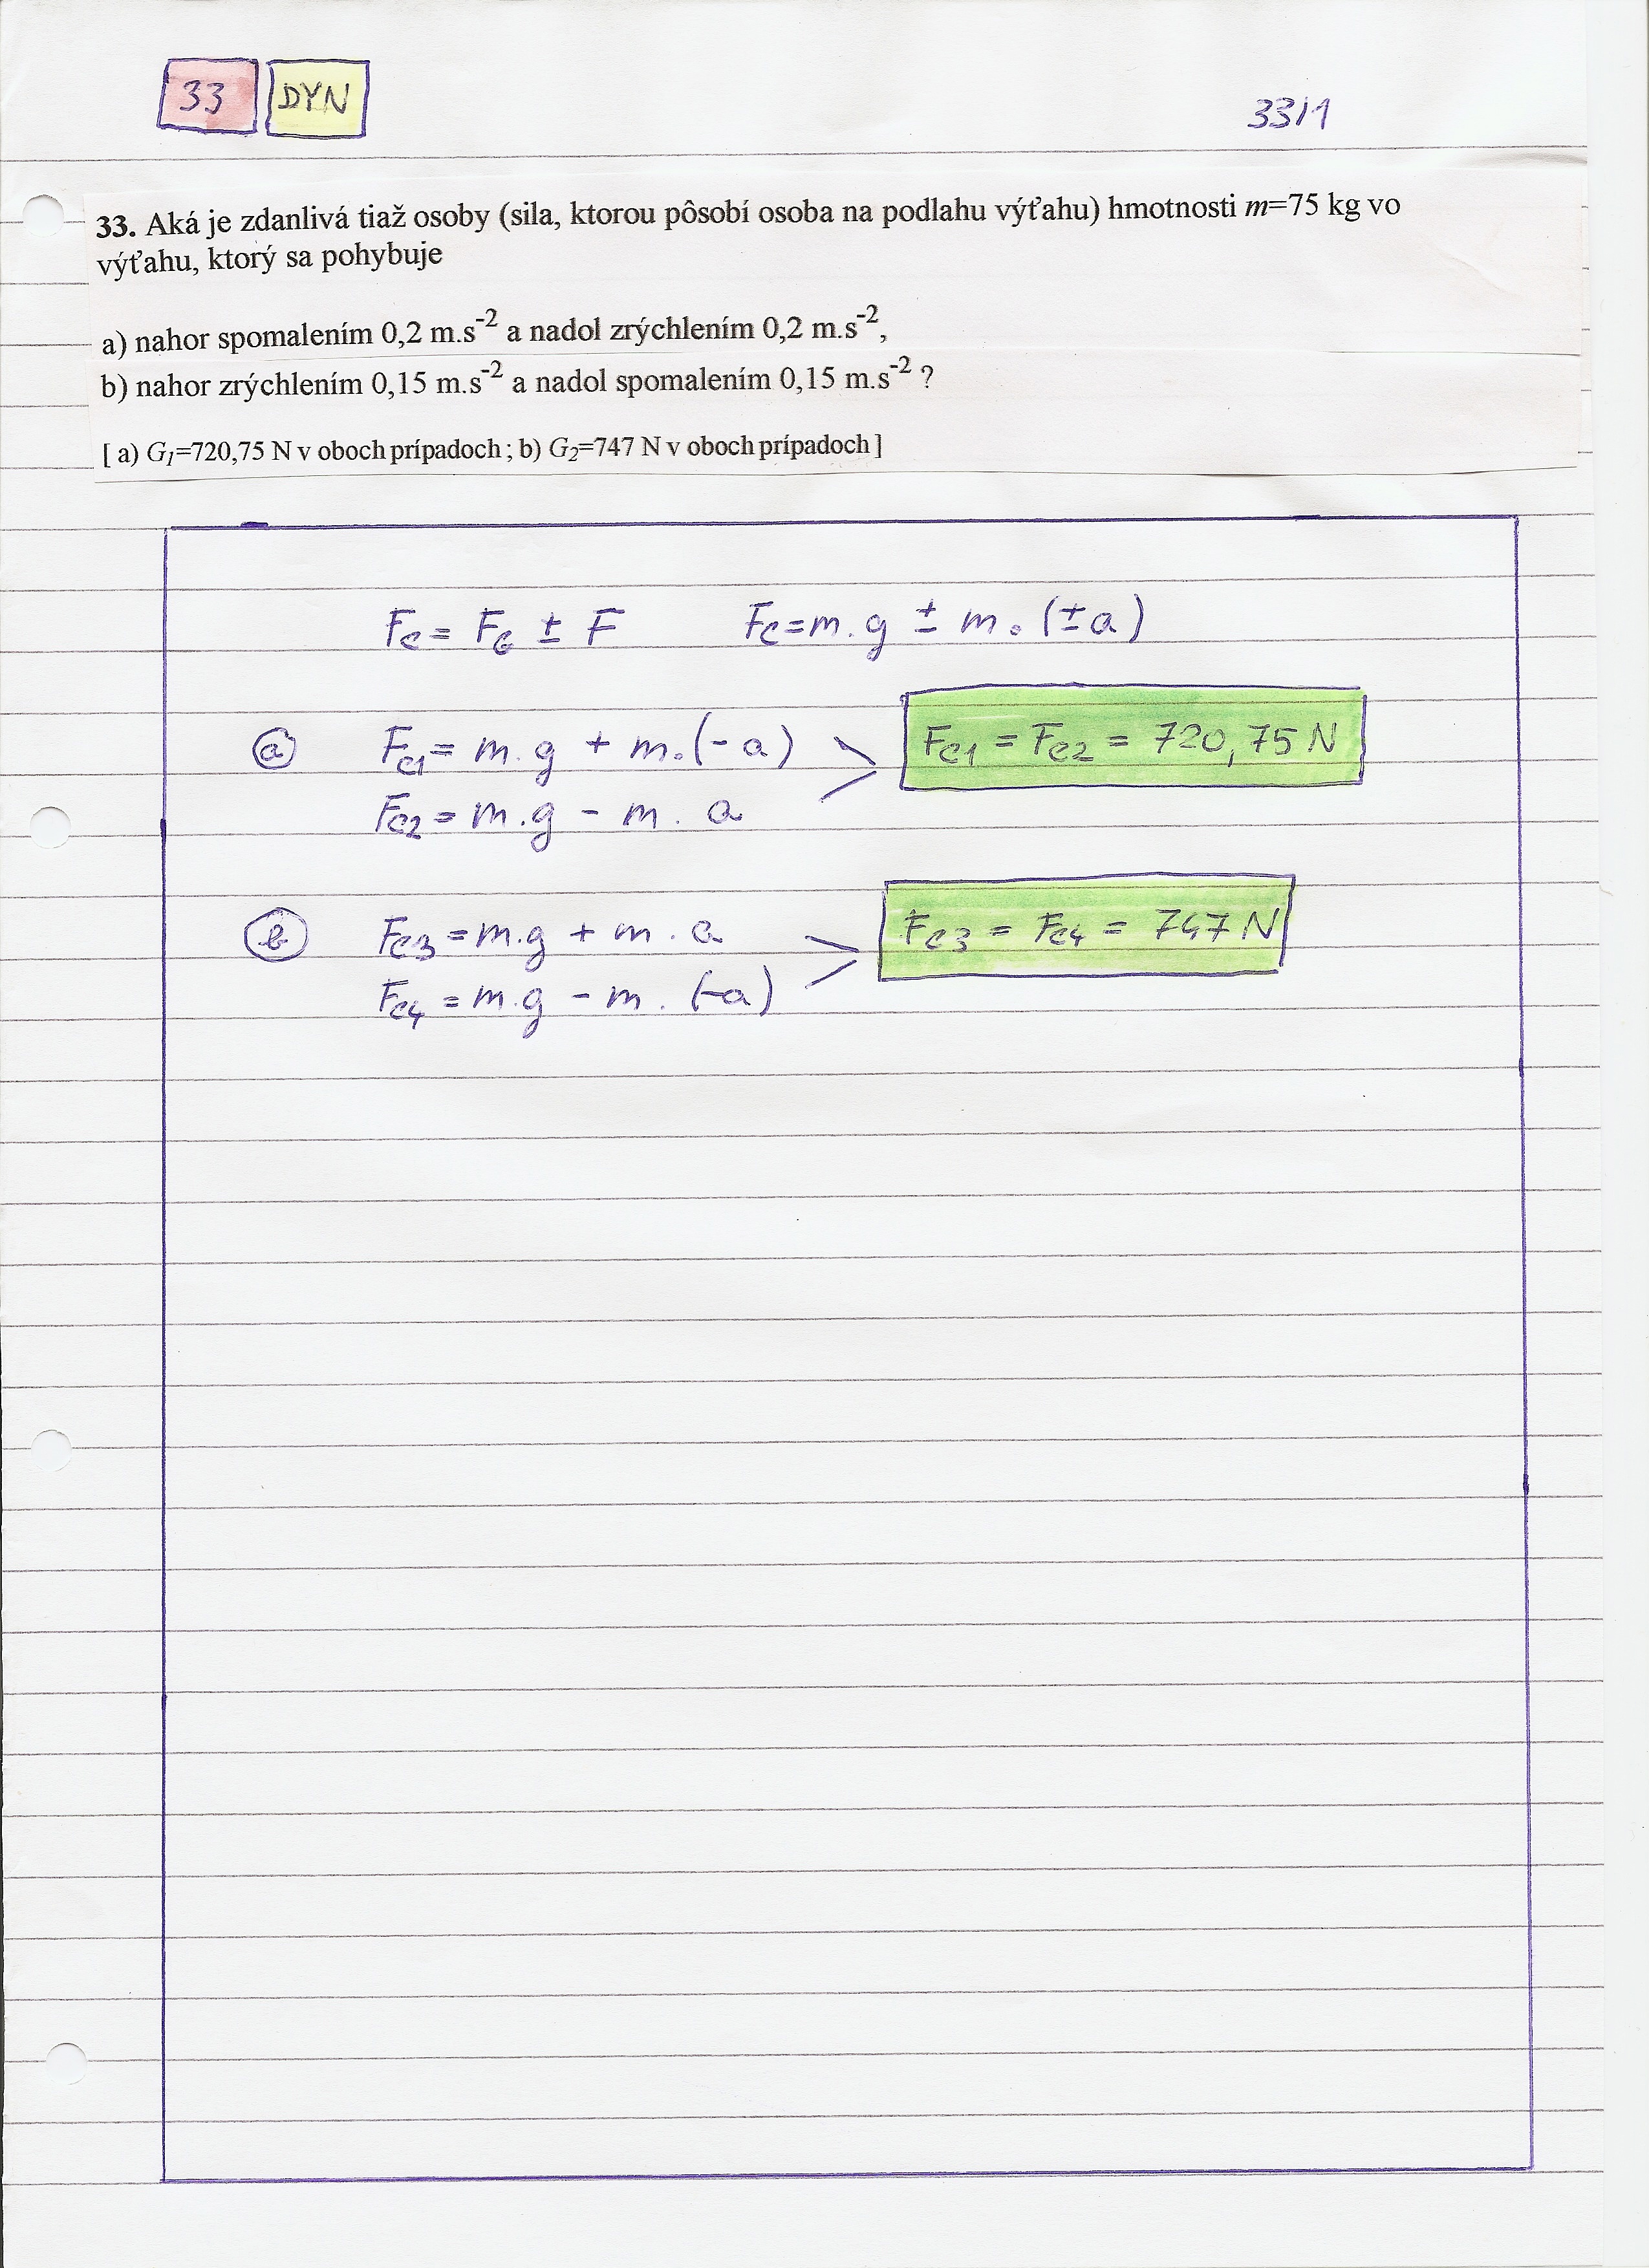 33 DYN
33/1
33. Aká je zdanlivá tiaž osoby (sila, ktorou pôsobí osoba na podlahu výťahu) hmotnosti m=75 kg vo
výťahu, ktorý sa pohybuje
a) nahor spomalením 0,2 m.s⁻² a nadol zrýchlením 0,2 m.s⁻²,
b) nahor zrýchlením 0,15 m.s⁻² a nadol spomalením 0,15 m.s⁻² ?
[ a) G₁=720,75 N v oboch prípadoch ; b) G₂=747 N v oboch prípadoch ]
Fc = FG ± F Fc=m.g ± m.(±a)
a Fc1 = m.g + m.(-a) Fc1 = Fc2 = 720,75 N
Fc2 = m.g - m.a
b Fc3 = m.g + m.a Fc3 = Fc4 = 747 N
Fc4 = m.g - m.(-a)